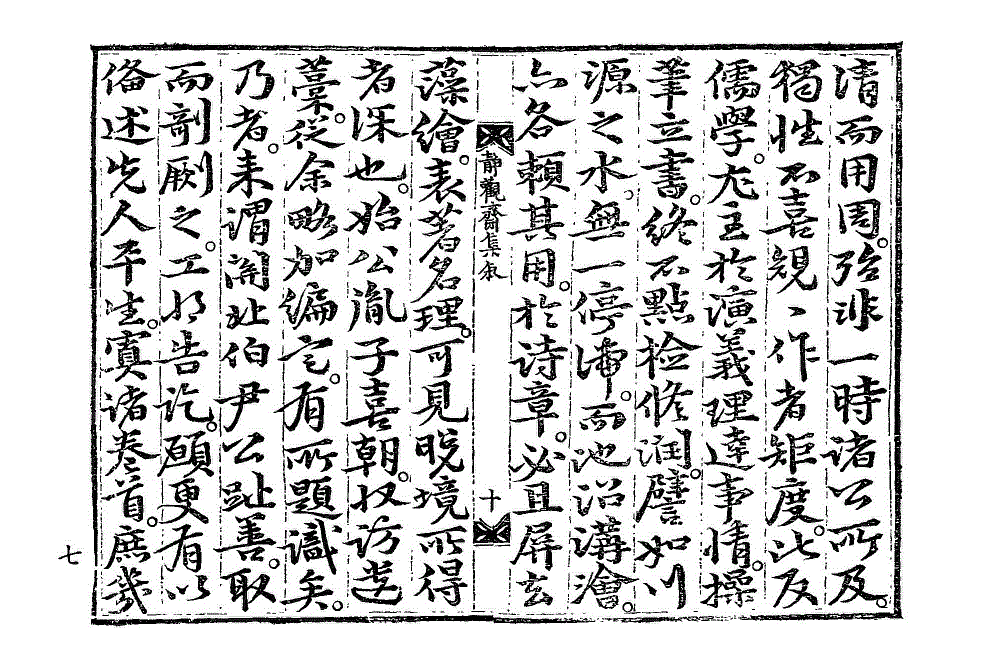 清而用周。殆非一時諸公所及。
獨性不喜規〻作者矩度。比及
儒學。尤主於演義理達事情。操
筆立書。終不點檢修潤。譬如川
源之水。無一停滯。而池沼溝澮。
亦各賴其用。於詩章。必且屏玄
靜觀齋集敍
十
藻繪。表茗名理。可見晚境所得
者深也。始公胤子喜朝。收訪遺
藁。從余略加編定。有所題識矣。
乃者。來謂開北伯尹公趾善。取
而剞劂之。工將告訖。願更有以
備述先人平生。寘諸卷首。庶幾
七